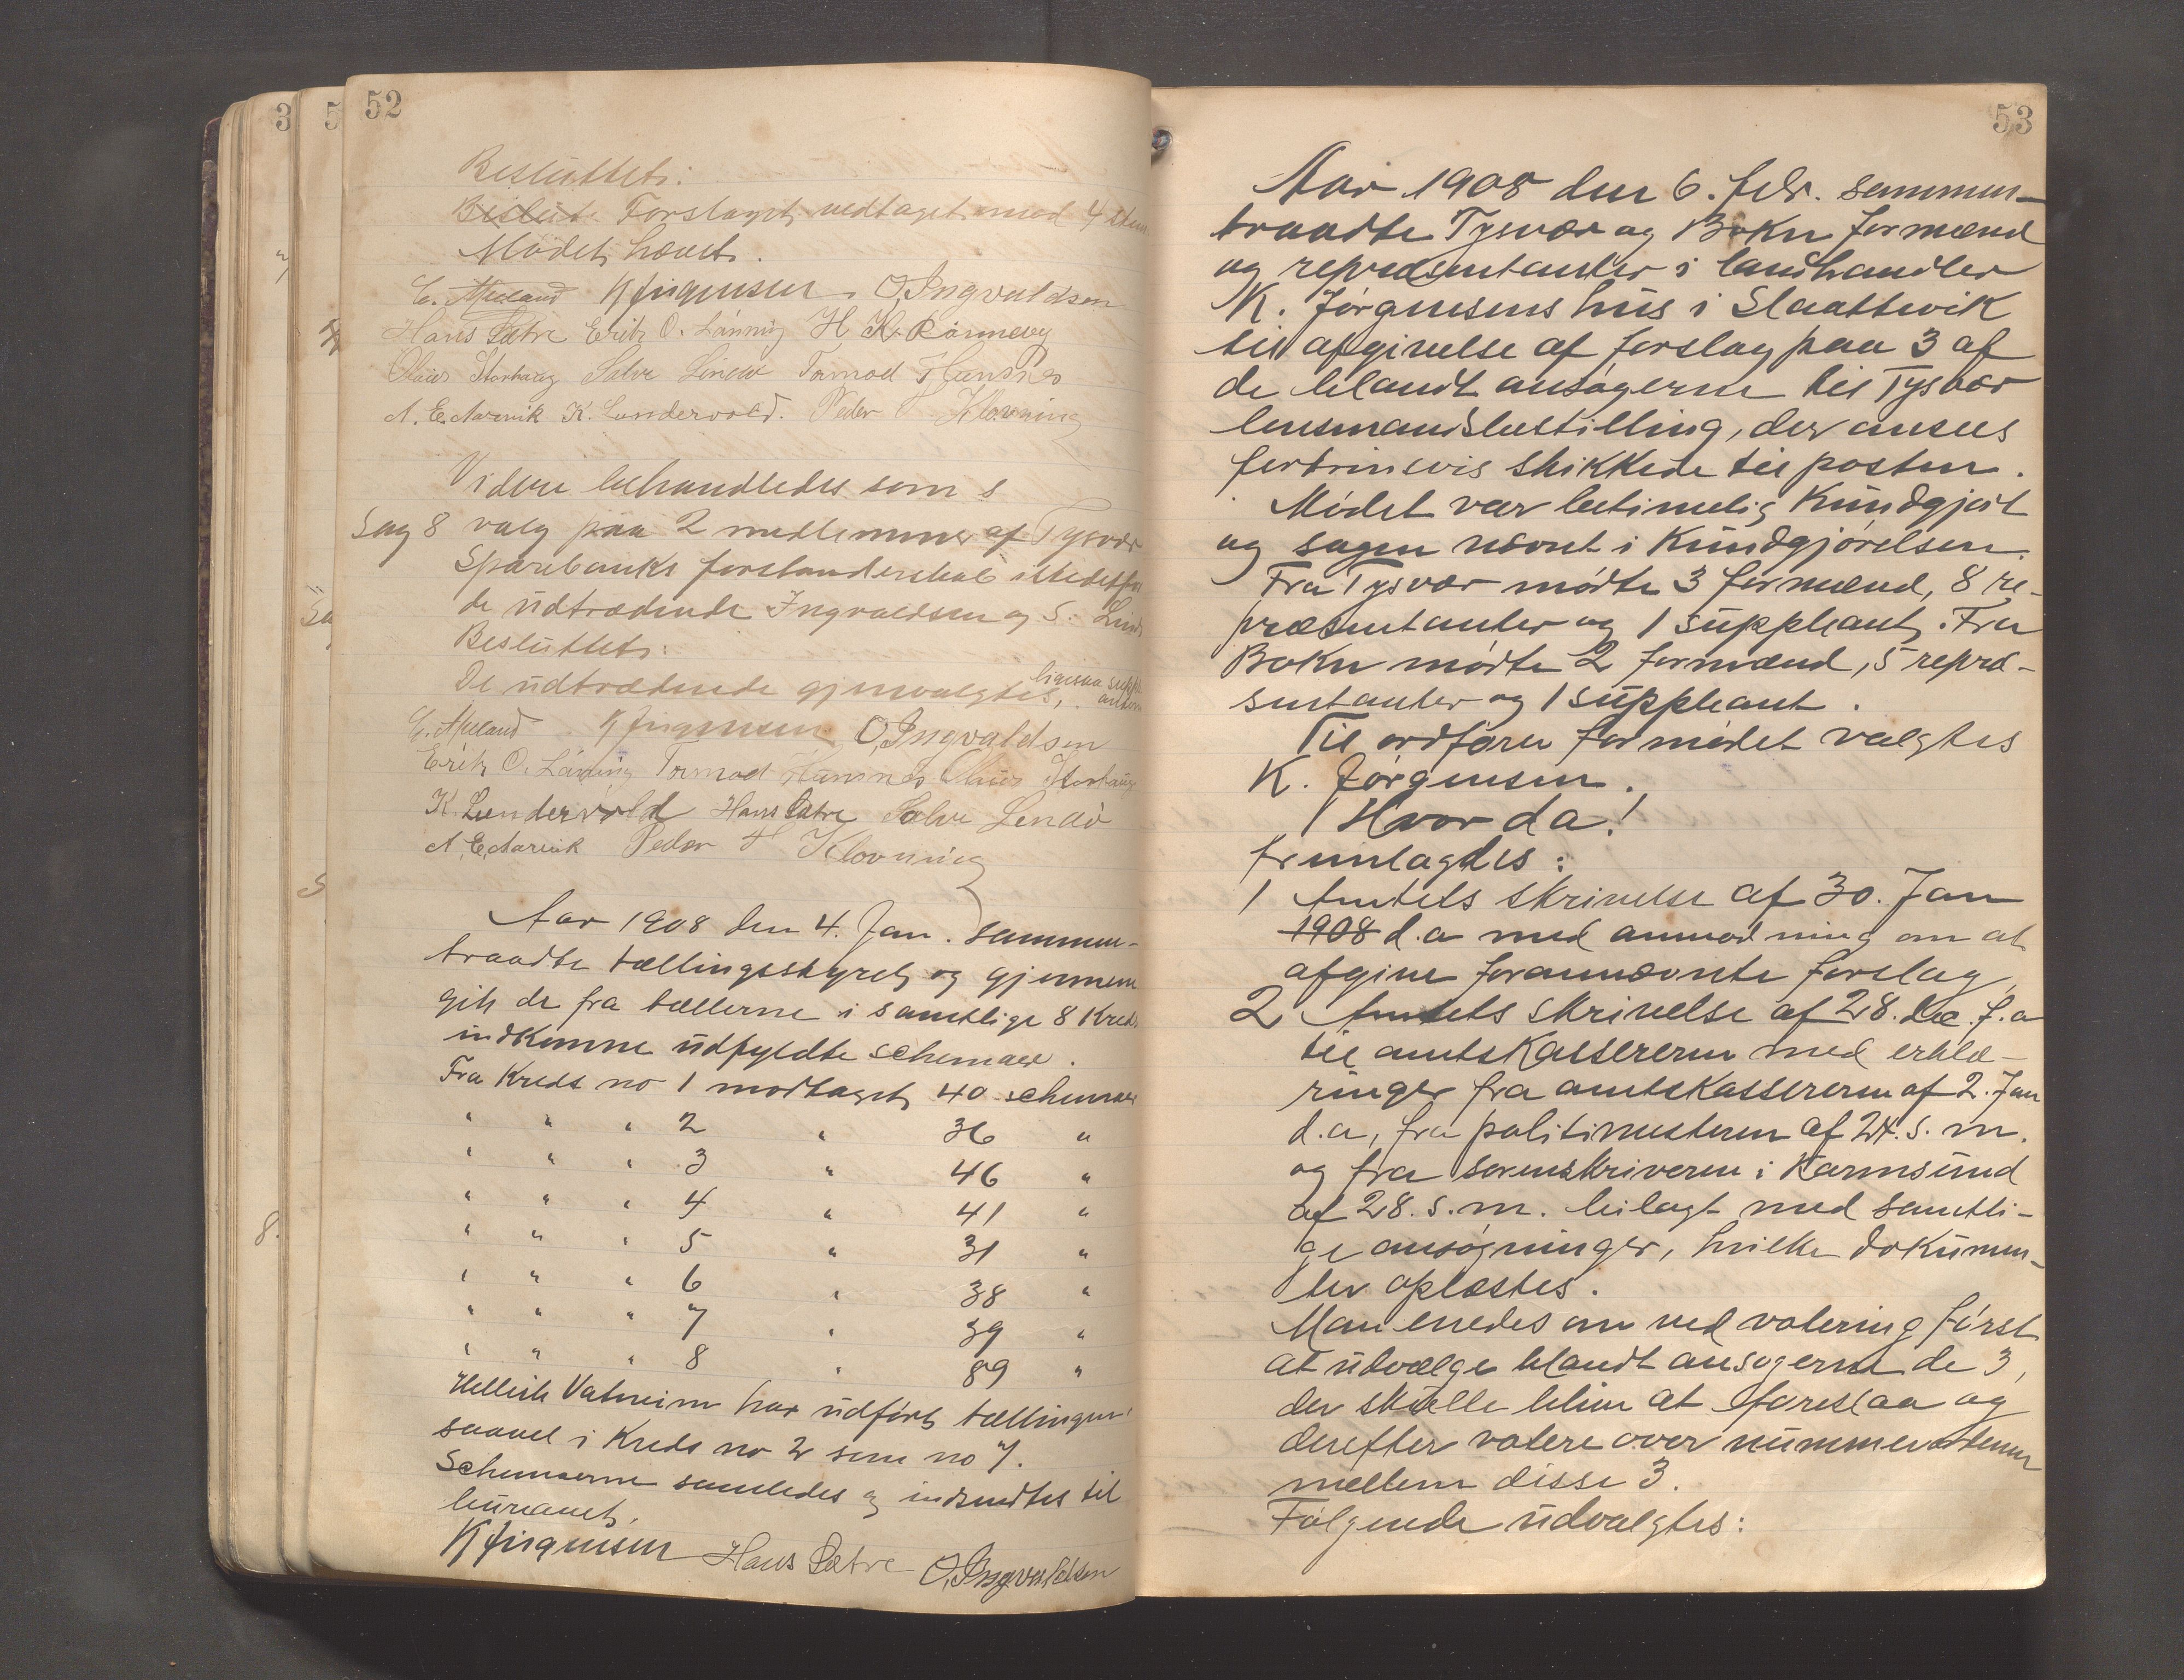 52
Besluttet:
Beslut: Forslaget vedtaget mod 4 stem
Mödet hævet.
C. Apeland K Jörgensen O, Ingvaldsen
Hans Sætre Erik O. Lönning H. K. Rönnevig
Olaus Storhaug Salve Lindø Tormod Hunsnes
A. E. Aarvik K. Lundervold. Peder T Klovning
Videre behandledes som s
Sag 8 valg paa 2 medlemmer af Tysvær
Sparebanks forstanderskab istedetfor
de udtrædende Ingvaldsen og S. Lindø
Besluttet:
De udtrædende gjenvalgtes, ligesaa suppl
C. Apeland K Jörgensen O, Ingvaldsen
Erik O. Lönning Tormod Hunsnes Olaus Storhaug
K. Lundervold Hans Sætre Salve Lindö
A. E, Aarvik Peder T Klovning
Aar 1908 den 4. Jan. sammen-
traadte tællingsstyret og gjennem
gik de fra tællerne i samtlige 8 Kreds
indkomne udfyldte schemaer.
Fra Kreds no 1 modtaget 40 schemaer
" " " 2 " 36 "
" " " 3 " 46 "
" " " 4 " 41 "
" " " 5 " 31 "
" " " 6 " 38 "
" " " 7 " 39 "
" " " 8 " 89 "
Vatneim har udført tællingen
saavel i Kreds no 2 som no 7.
Schemaerne samledes og indsendtes til
bureauet.
K Jörgensen Hans Sætre O, Ingvaldsen
53
Aar 1908 den 6. febr. sammen-
traadte Tysvær og Bokn formænd
og repræsentanter i landhandler
K. Jörgensens hus i Slaattevik
til afgivelse af forslag paa 3 af
de blandt ansøgerne til Tysvær
lensmandsbestilling, der ansees
fortrinsvis skikkede til posten.
Mödet var betimelig Kundgjort
og sagen nævnt i Kundgjörelsen.
Fra Tysvær mødte 3 formænd, 8 re-
præsentanter og 1 suppleant. Fra
Bokn mødte 2 formænd, 5 repræ-
sentanter og 1 suppleant.
Til ordfører for mødet valgtes
K. Jørgensen.
Hvor da!
fremlagdes:
1 Amtets skrivelse af 30. Jan
1908 d.a med anmodning om at
afgive forannævnte forslag
2 Amtets skrivelse af 28. dec. f.a
til amtskassereren med erklæ-
ringer fra amtskassereren af 2. Jan
d.a, fra politimesteren af 24. s. m.
og fra sorenskriveren i Karmsund
af 28. s. m. bilagt med samtli-
ge ansøgninger, hvilke dokumen-
ter oplæstes.
Man enedes om ved votering først
at udvælge blandt ansøgerne de 3,
der skulle blive at foreslaa og
derefter votere over nummerordenen
mellem disse 3.
Følgende udvalgtes:
3
5
8.